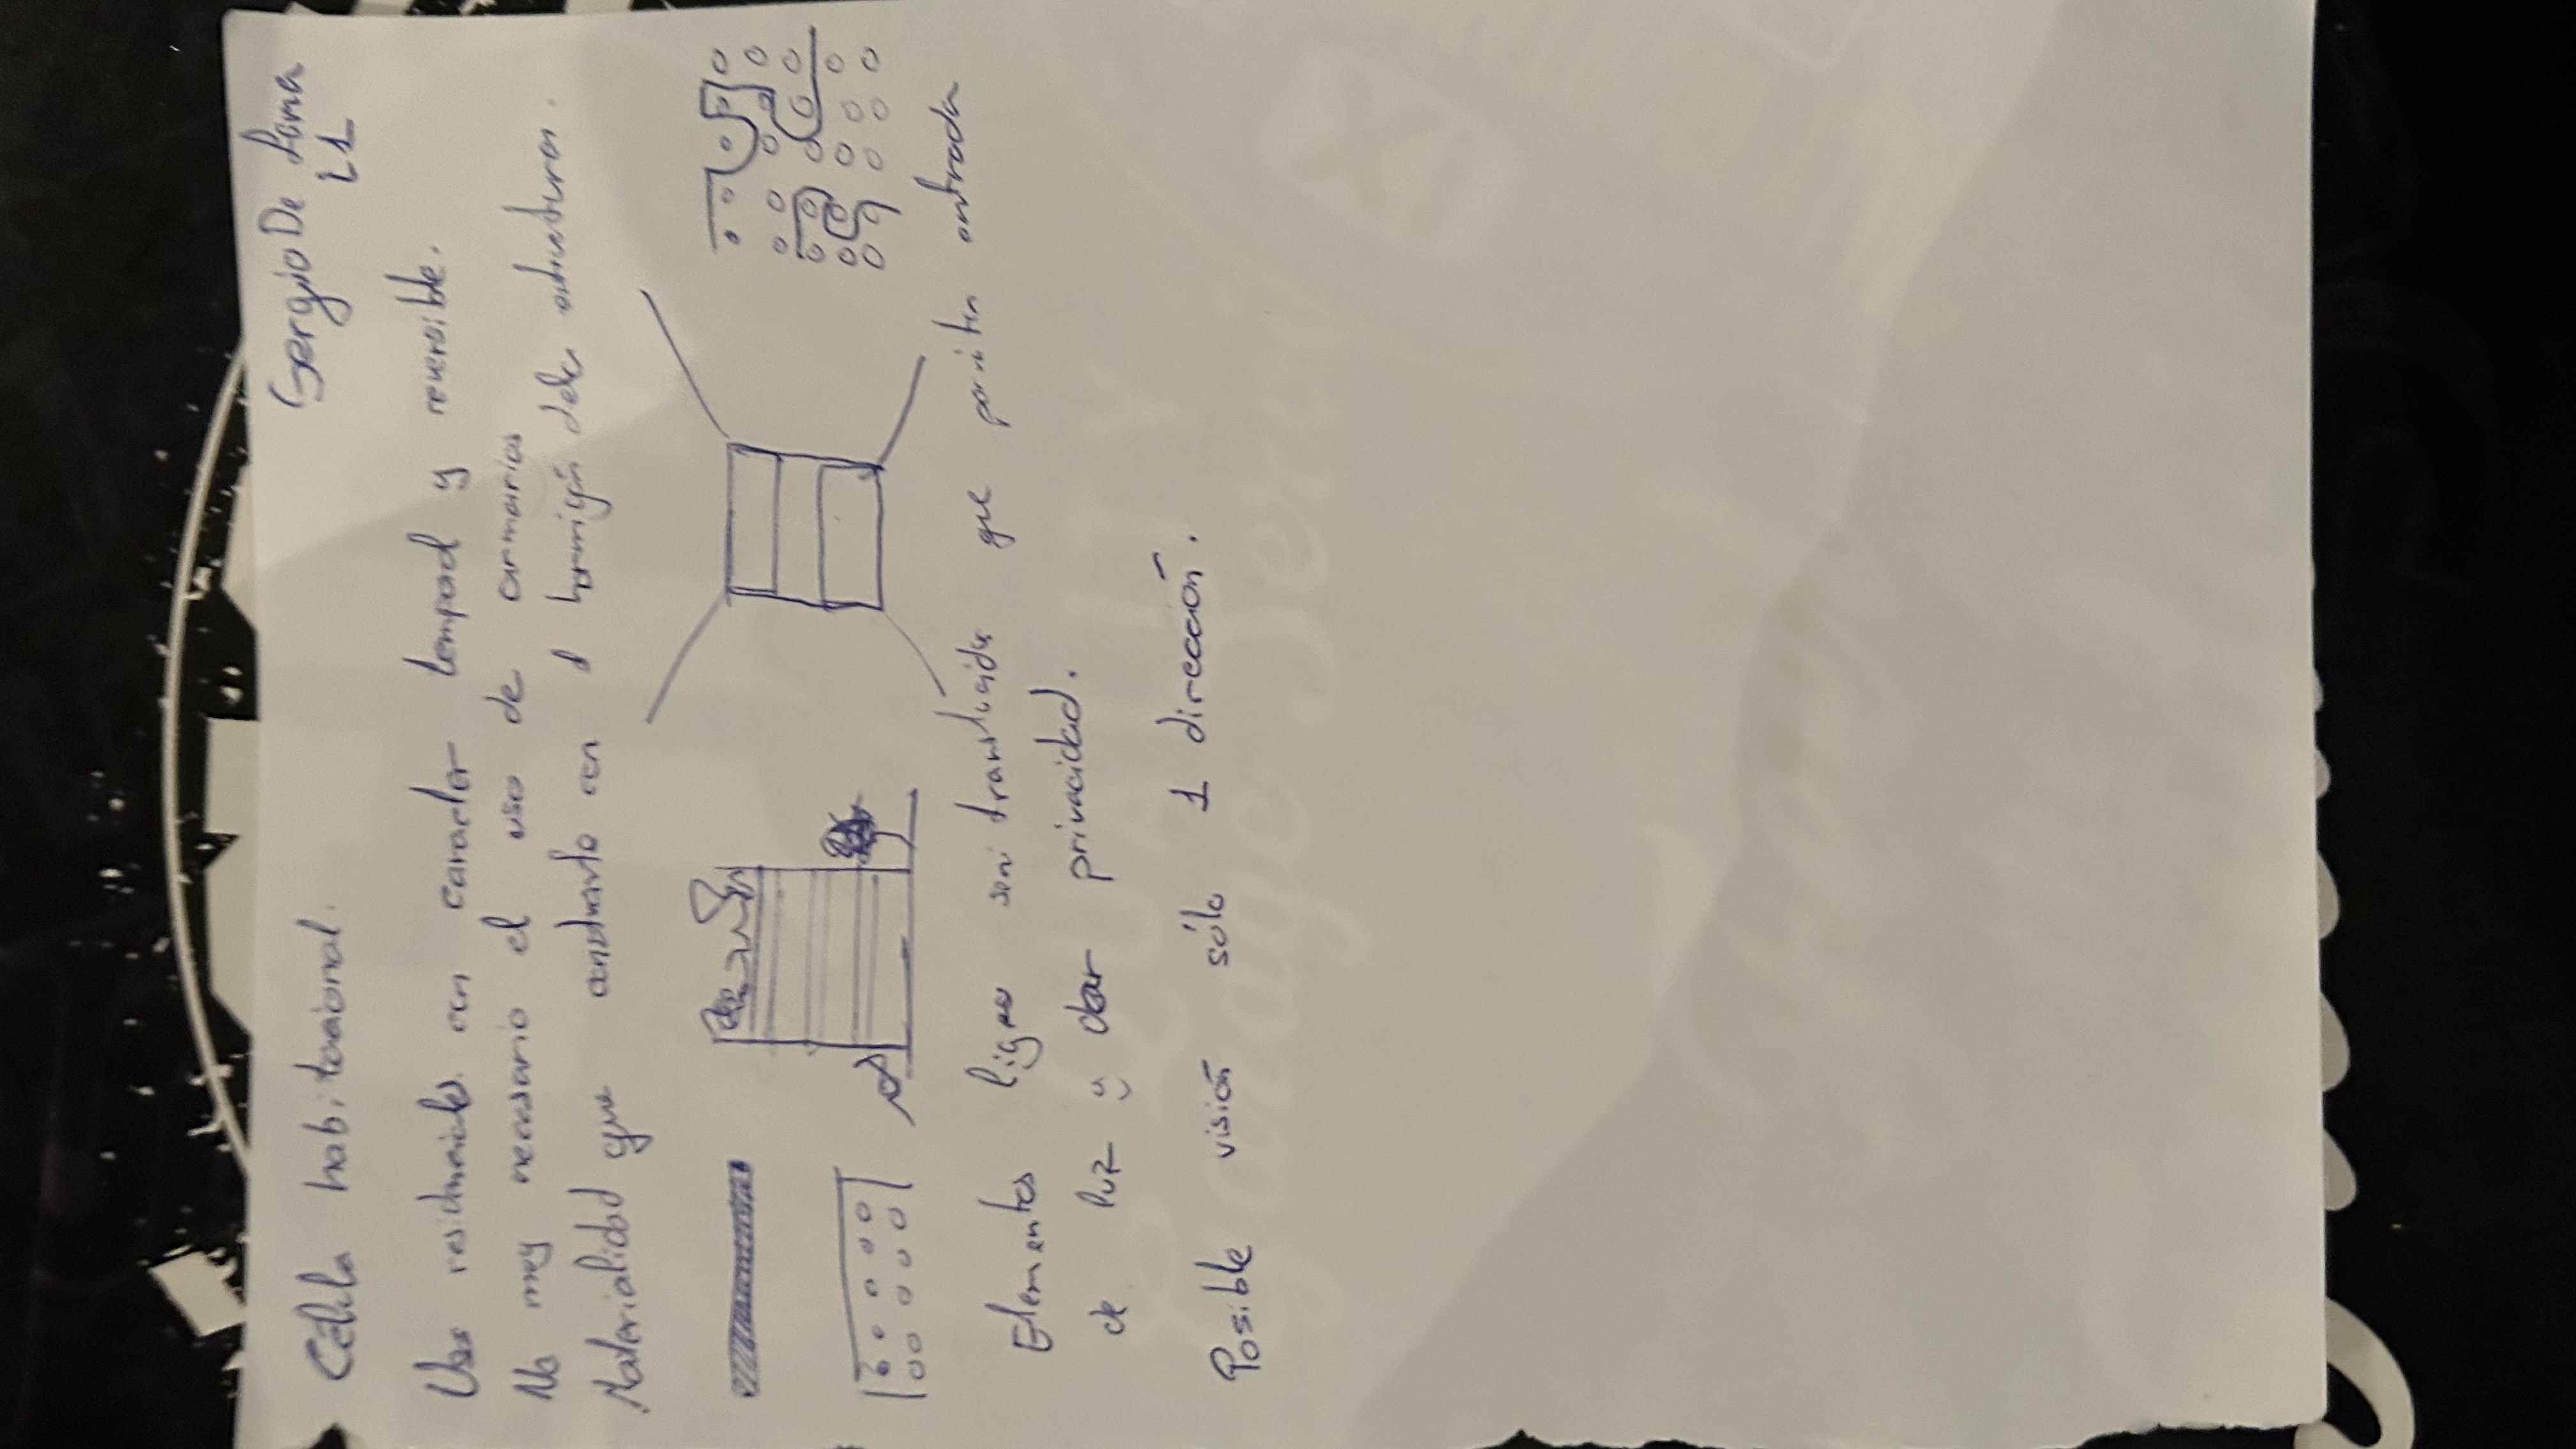 Sergio De Lama
L1
Célula habitacional.
Usos residenciales con caracter temporal y reversible.
No muy necesario el uso de armarios
Materialidad que contraste con el hormigón de la estructura.
Elementos ligeros semi translucidos que permiten entrada
de luz y dar privacidad.
Posible visión sólo 1 dirección.